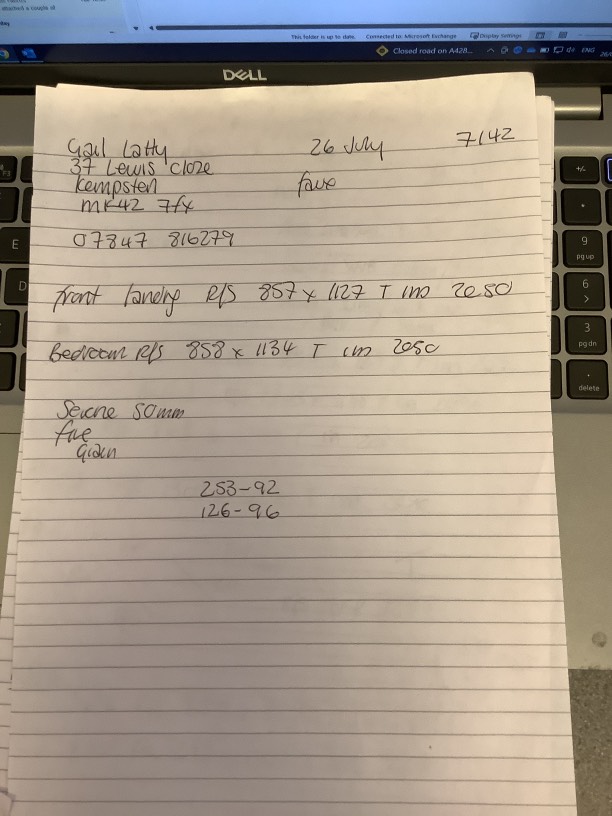 This folder is up to date. Connected to: Microsoft Exchange Display Settings
Closed road on A428... ENG
DELL
Gail Latty 26 July 7142
37 Lewis Close
Kempsten
MK42 7fx
07847 816279
front landing R/S 857 x 1127 T 2050
Bedroom R/S 858 x 1134 T 2050
50mm
253-92
126-96
E
D
+/-
9
pg up
6
>
3
pg dn
.
delete